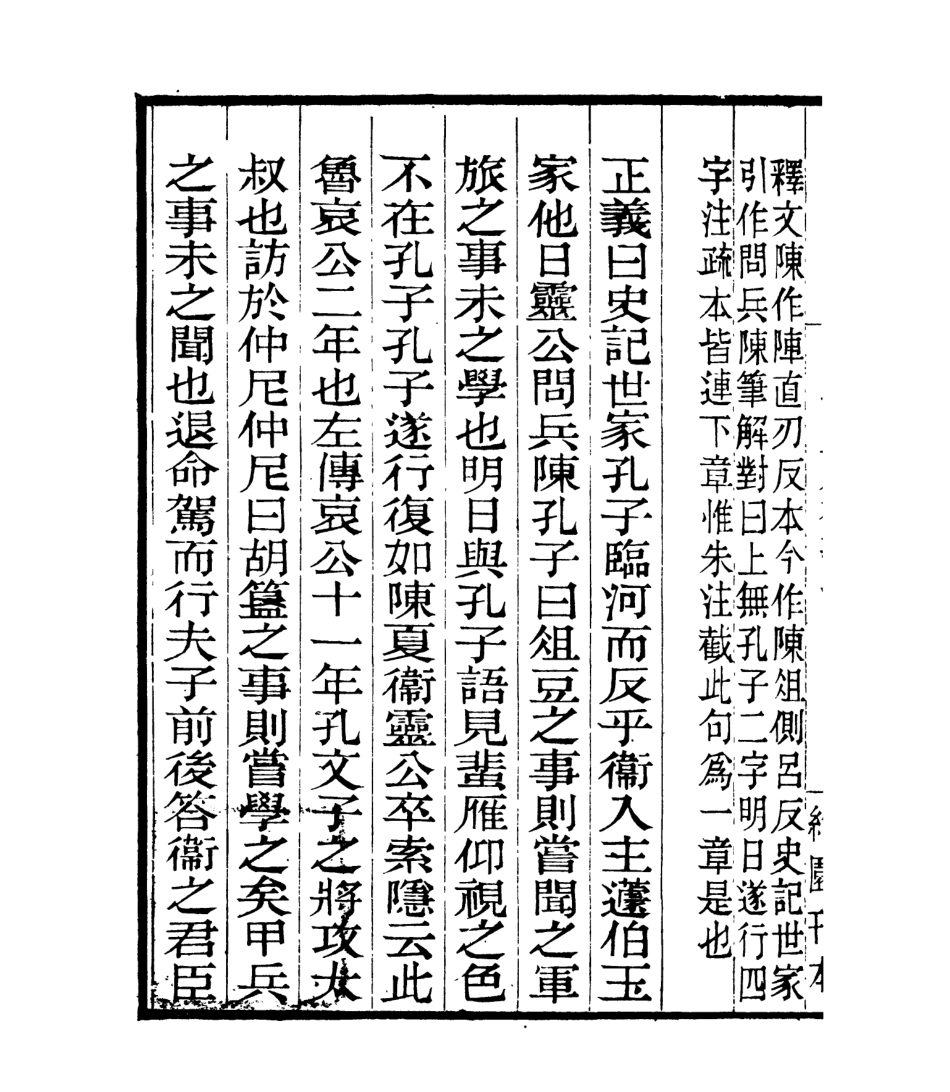 釋文陳作陣直刃反本今作陳俎側呂反史記世家
引作問兵陳筆解對曰上無孔子二字明日遂行四
字注疏本皆連下章惟朱注截此句爲一章是也
正義曰史記世家孔子臨河而反乎衞入主蘧伯玉
家他日靈公問兵陳孔子曰俎豆之事則嘗聞之軍
旅之事未之學也明日與孔子語見蜚雁仰視之色
不在孔子孔子遂行復如陳夏衞靈公卒索隱云此
魯哀公二年也左傳哀公十一年孔文子之將攻太
叔也訪於仲尼仲尼曰胡簋之事則嘗學之矣甲兵
之事未之聞也退命駕而行夫子前後答衞之君臣